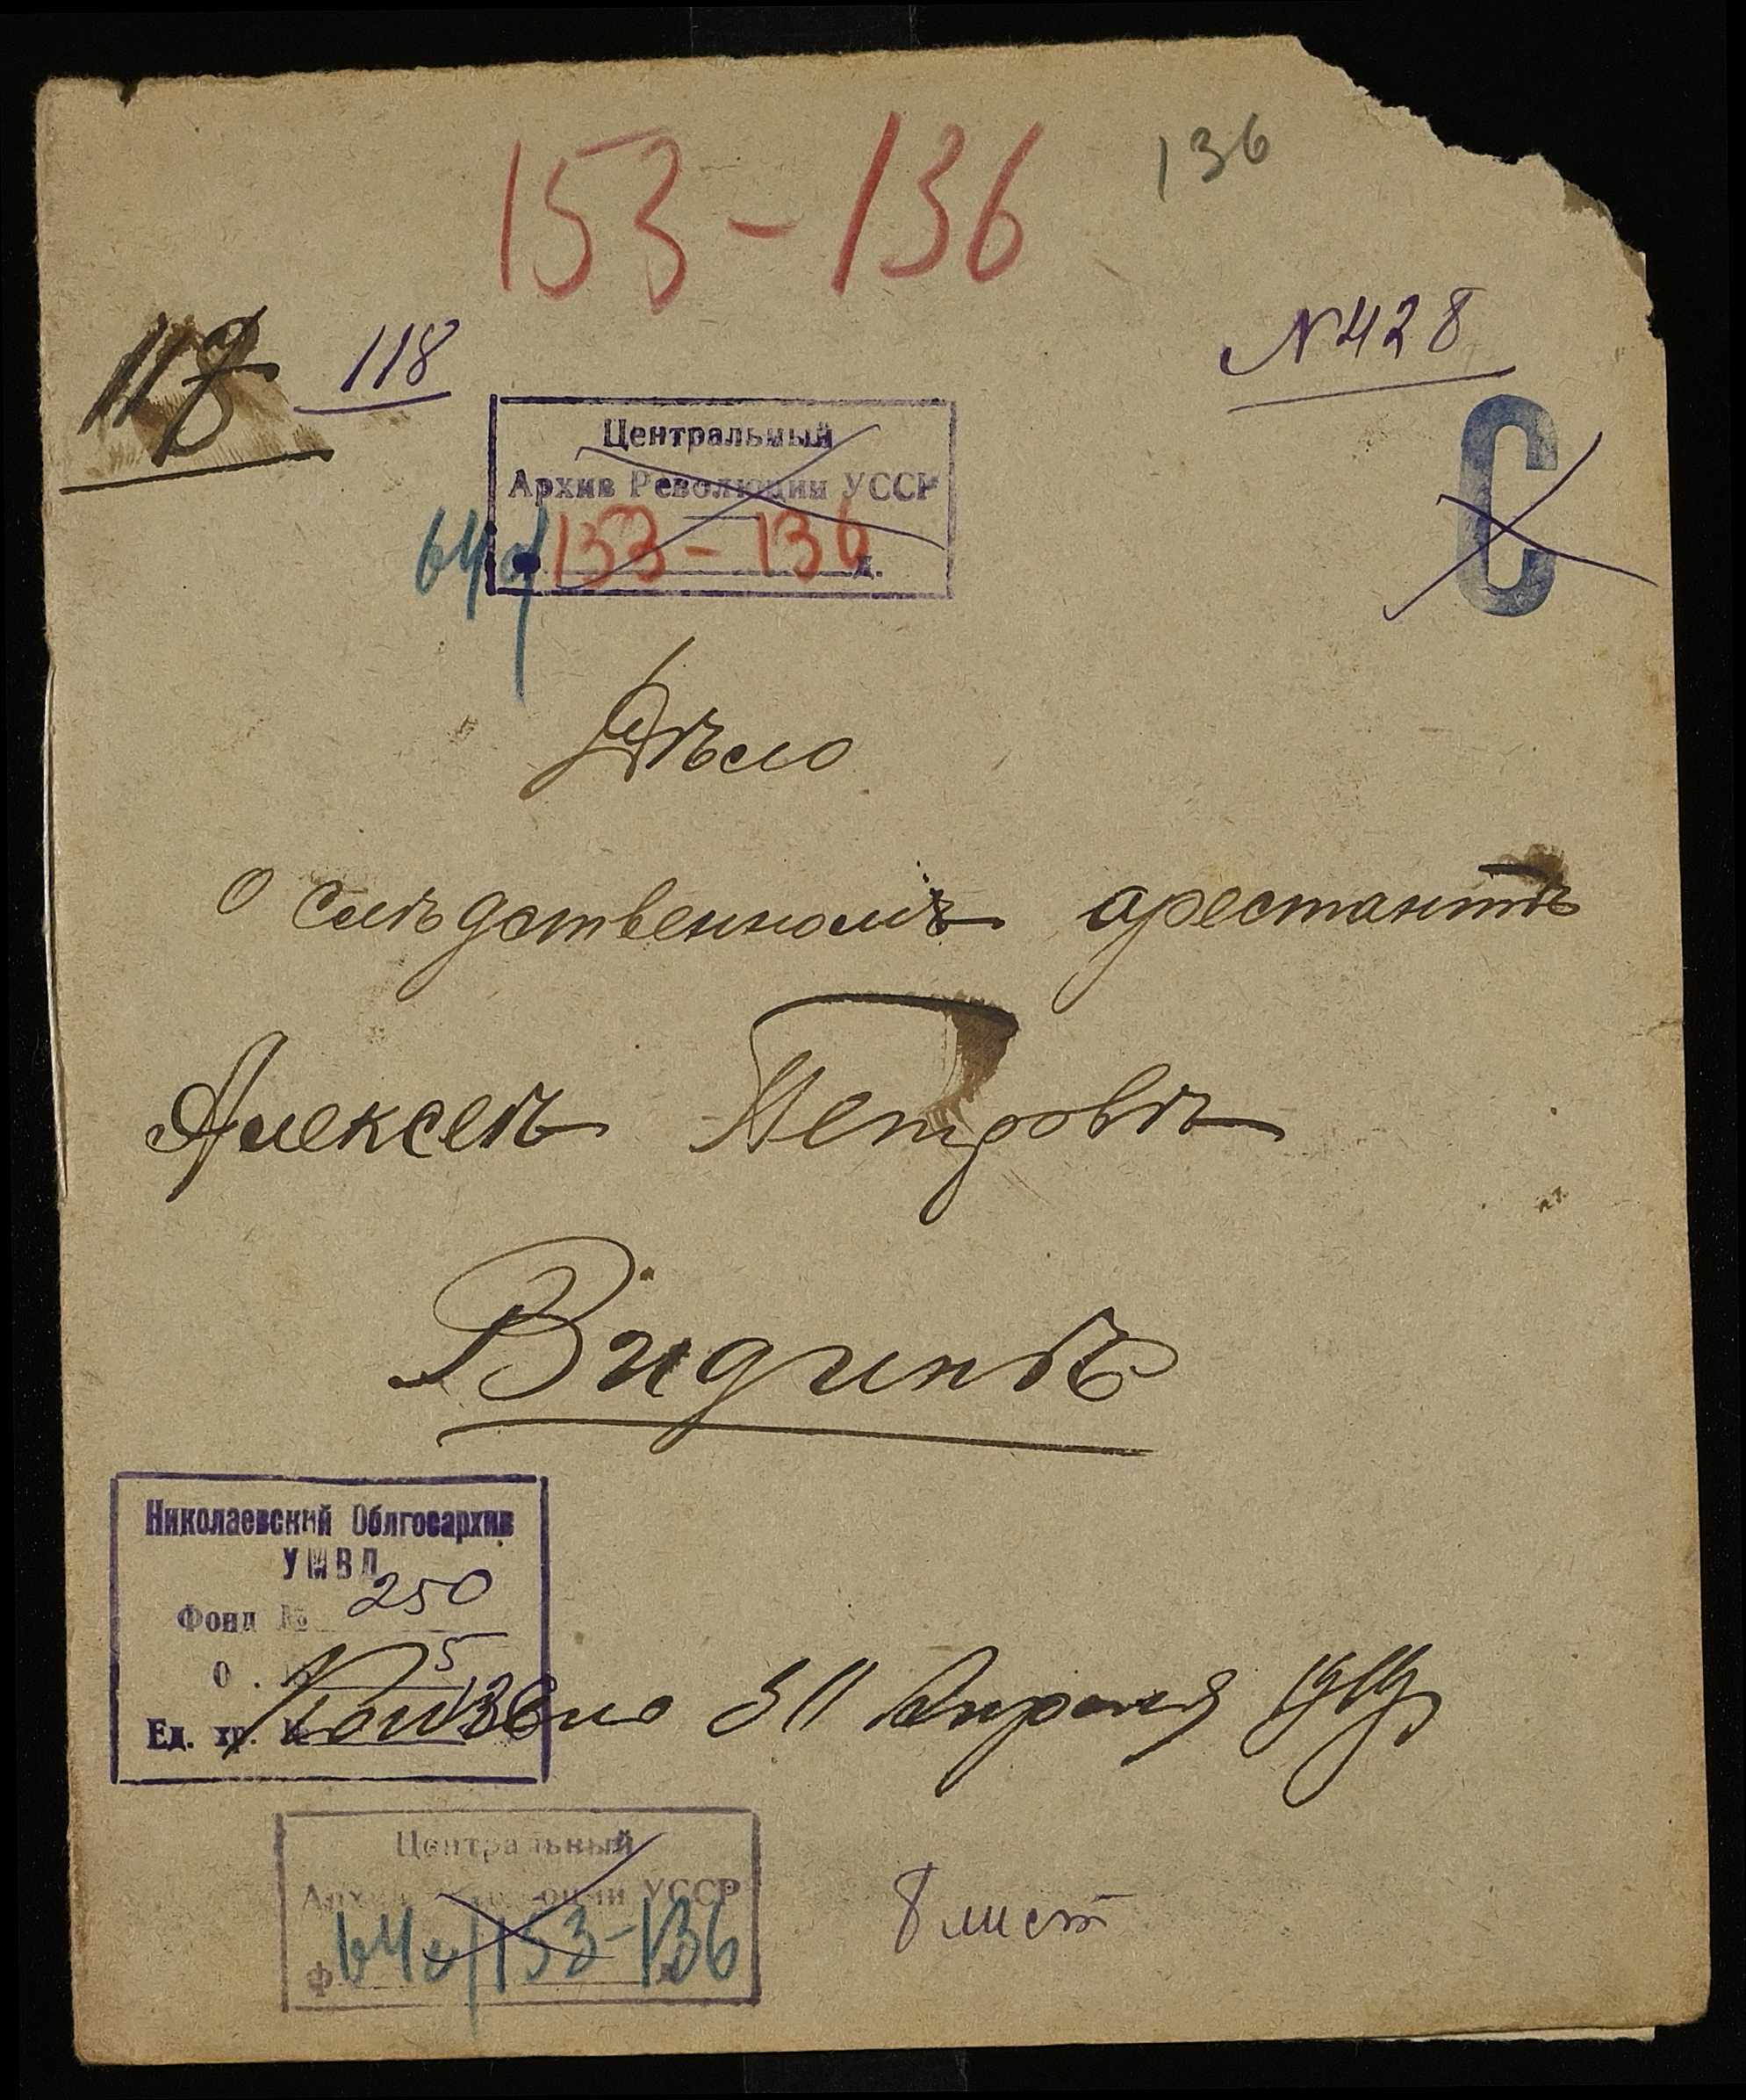 153-136
136
118
118
№ 428
Центральный
Архив Революции УССР
64
153-136
д.
С
Дѣло
О слѣдственномъ арестантѣ
Алексеѣ Петровѣ
Видинѣ
Николаевский Облгосархив
УМВД
Фонд № 250
О. 5
Ед. хр. № 136
11 Апреля 1919
Центральный
УССР
ф. 64 153-136
8 лист